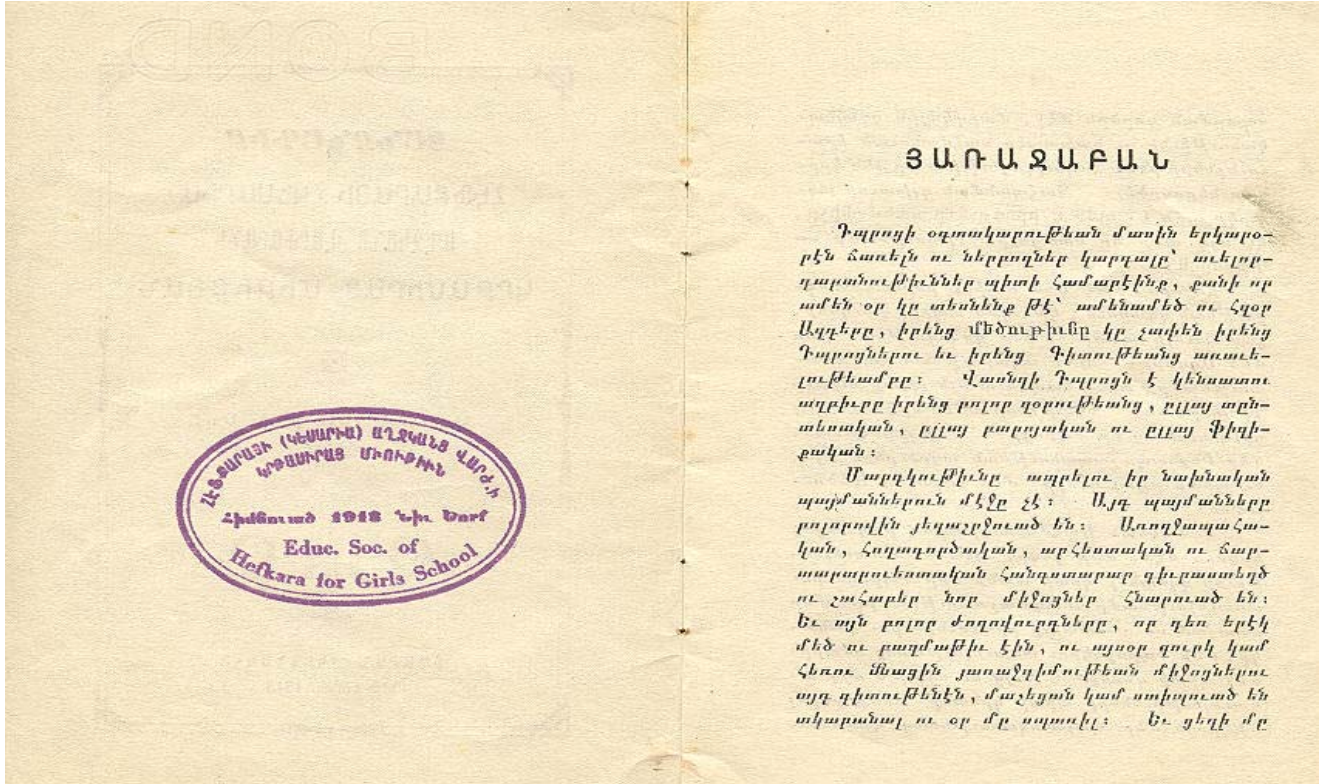 ՀԷՖՔԱՐԱՅԻ (ԿԵՍԱՐԻԱ) ԱՂՋԿԱՆՑ ՎԱՐԺ.Ի
ԿՐԹԱՍԻՐԱՑ ՄԻՈՒԹԻՒՆ
Հիմնուած 1918 Նիւ Եորք
Educ. Soc. of
Hefkara for Girls School
ՅԱՌԱՋԱԲԱՆ
Դպրոցի օգտակարութեան մասին երկարօ-
րէն ճառելն ու ներբողներ կարդալը՝ աւելոր-
դաբանութիւններ պիտի համարէինք, քանի որ
ամեն օր կը տեսնենք թէ՝ ամենամեծ ու հզօր
Ազգերը, իրենց մեծութիւնը կը չափեն իրենց
Դպրոցներու եւ իրենց Գիտութեանց առաւե-
լութեամբը։ Վասնզի Դպրոցն է կենսատու
աղբիւրը իրենց բոլոր զօրութեանց, ըլլայ տըն-
տեսական, ըլլայ բարոյական ու ըլլայ Ֆիզի-
քական։
Մարդկութիւնը ապրելու իր նախնական
պայմաններուն մէջը չէ։ Այդ պայմանները
բոլորովին յեղաշրջուած են։ Առողջապահա-
կան, հողագործական, արհեստական ու ճար-
տարարուեստական հանգստարար դիւրաստեղծ
ու շահաբեր նոր միջոցներ հնարուած են։
Եւ այն բոլոր ժողովուրդները, որ դեռ երէկ
մեծ ու բազմաթիւ էին, ու այսօր զուրկ կամ
հեռու մնացին յառաջդիմութեան միջոցներու
այդ գիտութենէն, մաշեցան կամ ստիպուած են
տկարանալ ու օր մը սպառիլ։ Եւ ցեղի մը